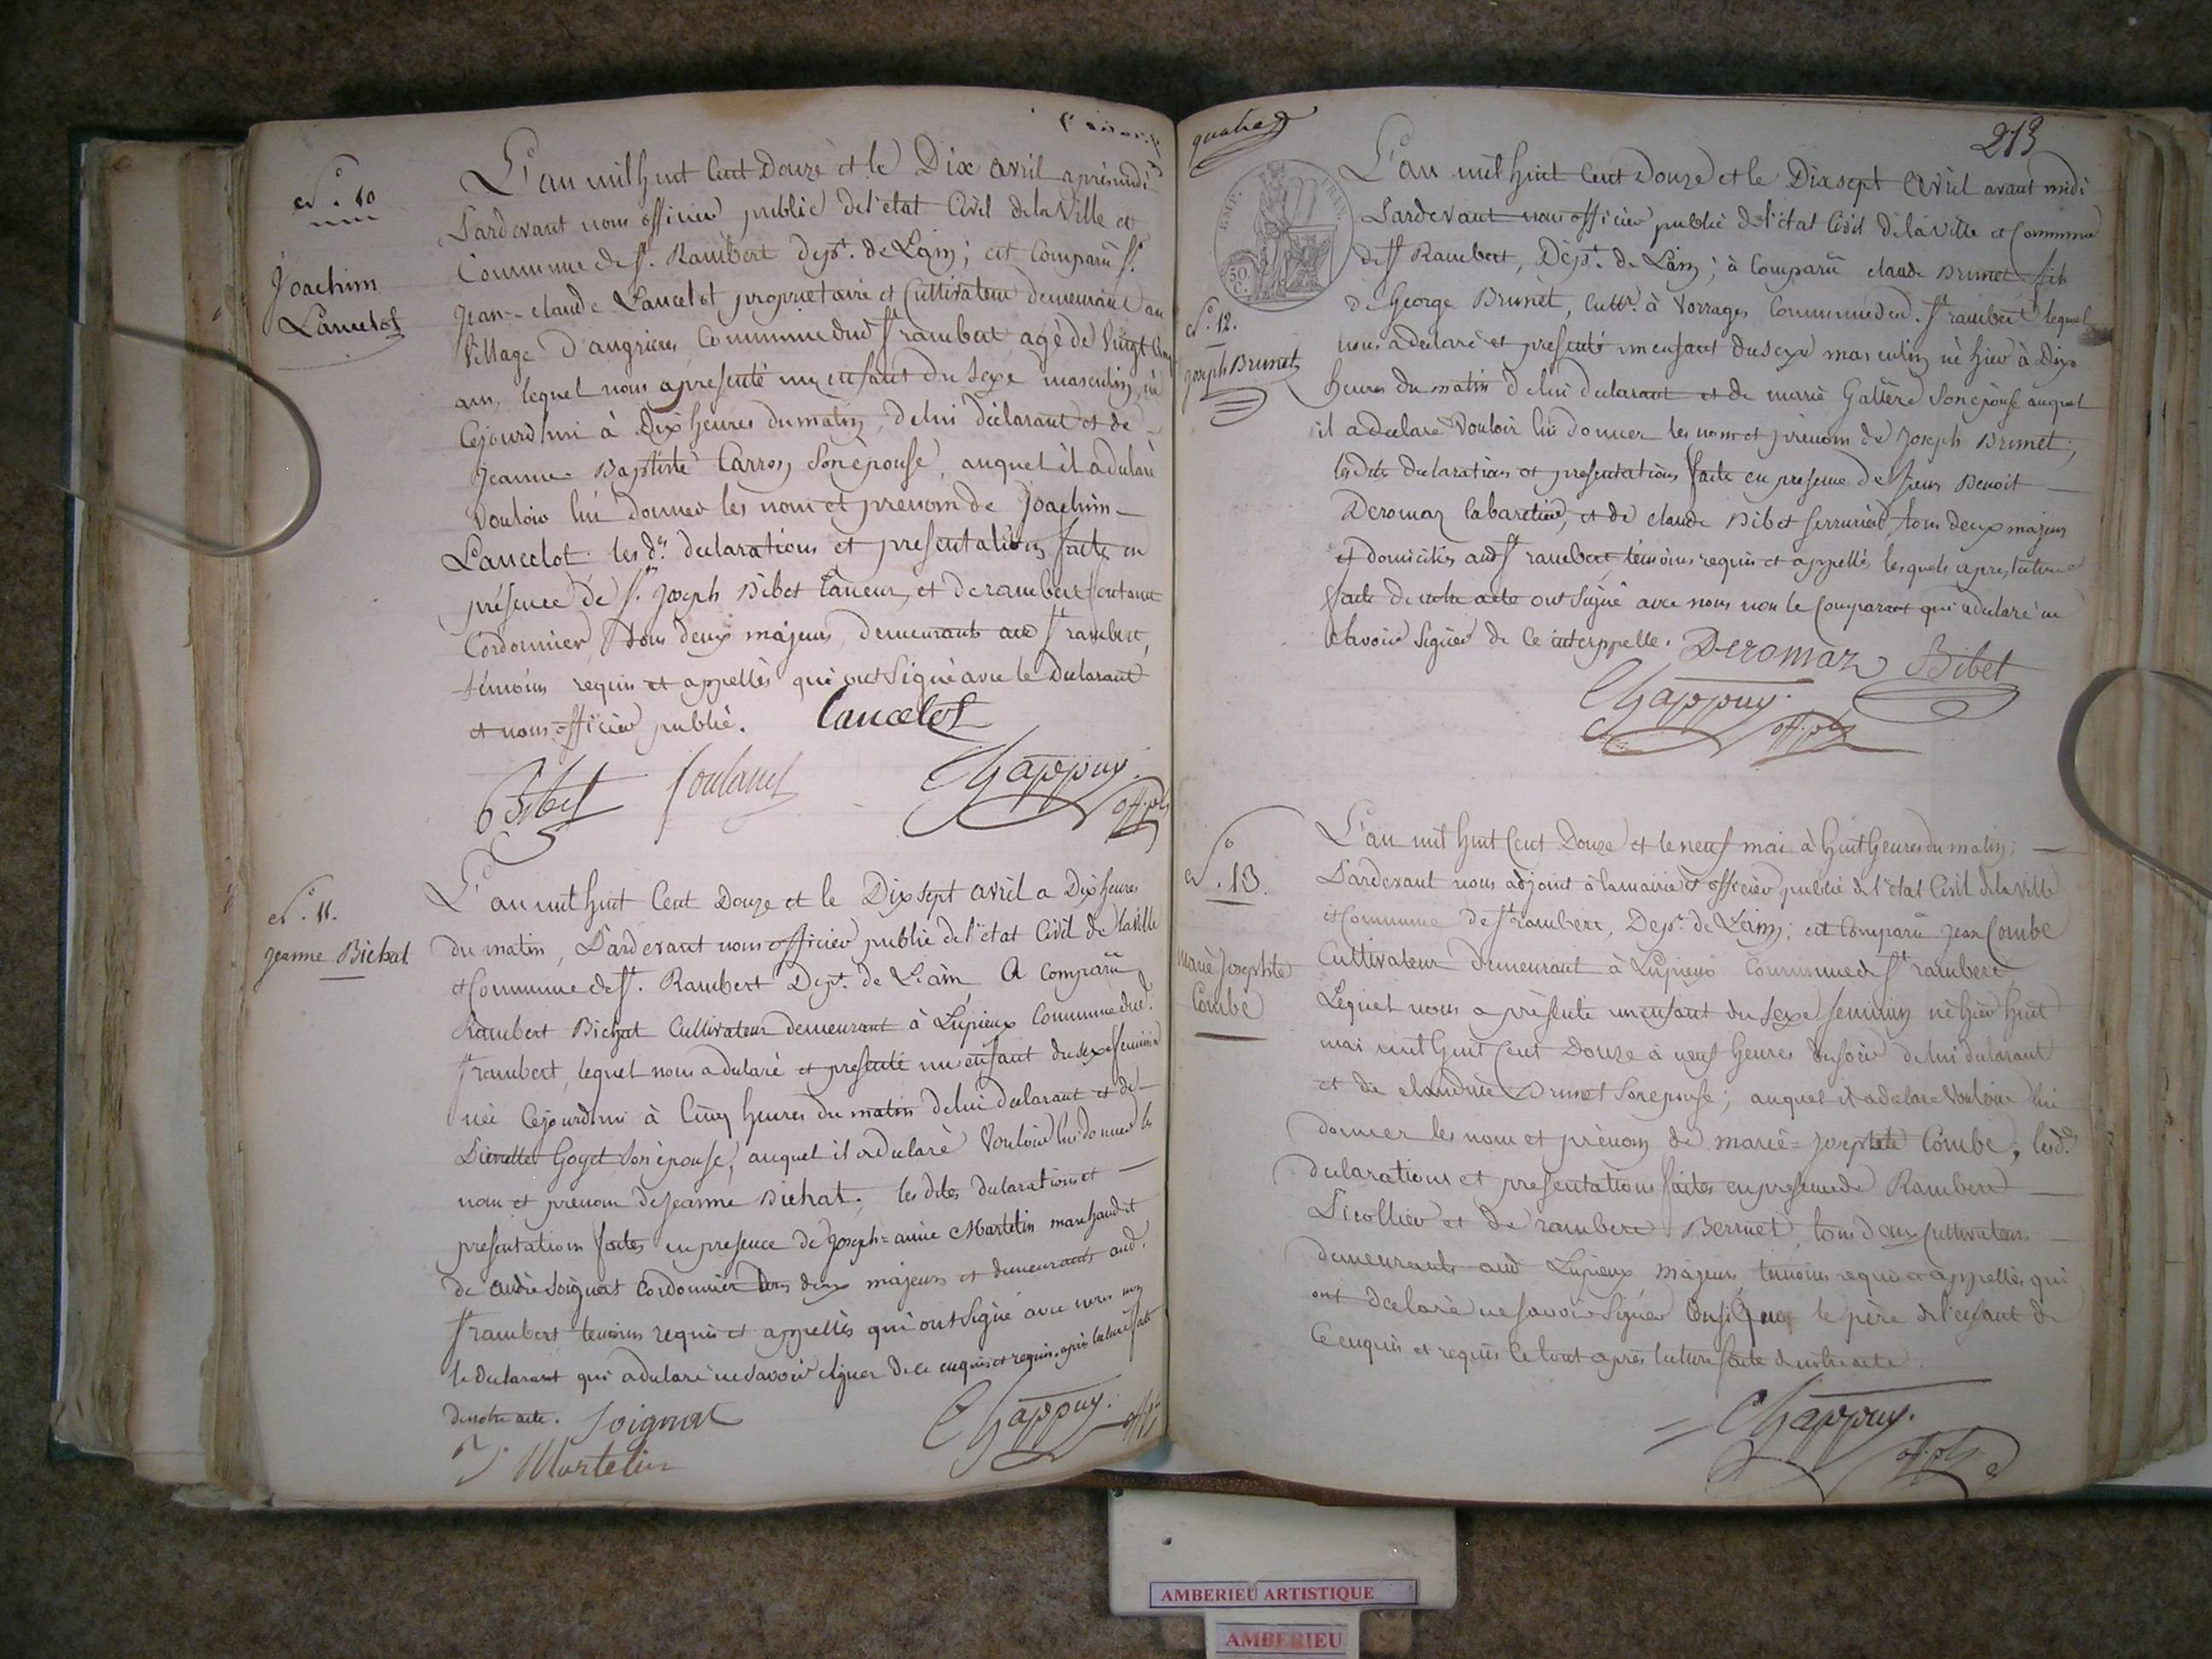 N.° 10
Joachim
Lancelot
L'an mil huit Cent Douze et le Dix avril après midi
Pardevant nous officier public de l'état Civil de la Ville et
Commune de St. Rambert dept. de Lain; est Comparu Sr.
Jean-claude Lancelot proprietaire et Cultivateur demeurant au
Village d'angrieres Commune dud St rambert agé de Vingt Cinq
ans, lequel nous a presenté un enfant du Sexe masculin, né
Cejourdhui à Dix heures du matin, de lui déclarant et de
Jeanne-Baptiste Carron Son épouse, auquel il a declaré
Vouloir lui donner les nom et prenom de Joachim
Lancelot. les dts. declarations et presentations faites en
présence de Sr. Joseph Bibet taneur, et de rambert foutanet
Cordonnier, tous deux majeurs, demeurants aud St rambert,
témoins requis et appellés qui ont Signé avec le Declarant
et nous officier public. Lancelot
Bibet Chappuy off. pb.
N.° 11.
Jeanne Bichat
L'an mil huit Cent Douze et le Dix sept avril a Dix heures
du matin, Pardevant nous officier public de l'état Civil de la Ville
et Commune de St. Rambert Dept. de L'ain A Comparu
Rambert Bichat Cultivateur demeurant à Lupieux Commune dud.
St rambert, lequel nous a declaré et presenté un enfant du sexe feminin
née Cejourdhui à Cinq heures du matin de lui declarant et de
Pierrette Goyet Son épouse, auquel il a declaré Vouloir lui donner les
nom et prenom de Jeanne Bichat; les dites declarations et
presentation faites en presence de Joseph=aimé Martelin marchand et
de andré Soignat Cordonnier tous deux majeurs et demeurants aud.
St rambert temoins requis et appellés qui ont Signé avec nous non
le declarant qui a declaré ne savoir signer de ce enquis et requis. après lecture faite
de notre acte. Soignat
J. Martelin Chappuy. off. pb.
quatre
213
EMP. FRAN.
50 C.
N.° 12.
Joseph Brunet
L'an mil huit Cent Douze et le Dix sept Avril avant midi
Pardevant nous officier public de l'état Civil de la Ville et Commune
de St Rambert, Dépt. de Lain; à Comparu claude Brunet fils
de George Brunet, Cultr. à Vorrages Commune dud. St rambert lequel
nous a declaré et presenté un enfant du sexe masculin né hier à Dix
heures du matin de lui declarant et de marie Galliere Son épouse auquel
il a declaré Vouloir lui donner les nom et prenom de Joseph Brunet;
les dites declarations et presentations faite en presence de Sieur Benoit
Deromaz Cabaretier, et de claude Bibet Serrurier, tous deux majeurs
et domiciliés aud St rambert témoins requis et appellés, lesquels apres lecture
faite de notre acte ont Signé avec nous non le Comparant qui a declaré ne
Savoir Signer de Ce interppelle. Deromaz Bibet
Chappuy. off. pb.
N.° 13.
Marie Josephte
Combe
L'an mil huit Cent Douze et le neuf mai à huit heures du matin;
Pardevant nous adjoint à la mairie et officier public de l'état Civil de la Ville
et Commune de St rambert, Dept. de Lain; est Comparu Jean Combe
Cultivateur demeurant à Lupieux Commune de St rambert
Lequel nous a présenté un enfant du Sexe feminin né hier huit
mai mil huit Cent Douze à neuf heures du soir de lui declarant
et de claudine Brunet Son epouse; auquel il a declaré Vouloir lui
donner les nom et prénom de marie=Josephte Combe; lesd.
declarations et presentations faites en presence de Rambert
Picollier et de rambert Bernet, tous deux Cultivateurs
demeurants aud Lupieux majeurs temoins requis et appellés qui
ont declaré ne savoir Signer Ainsi que le père de l'enfant de
Ce enquis et requis le tout après lecture faite de notre acte.
Chappuy. off. pb.
AMBERIEU ARTISTIQUE
AMBERIEU